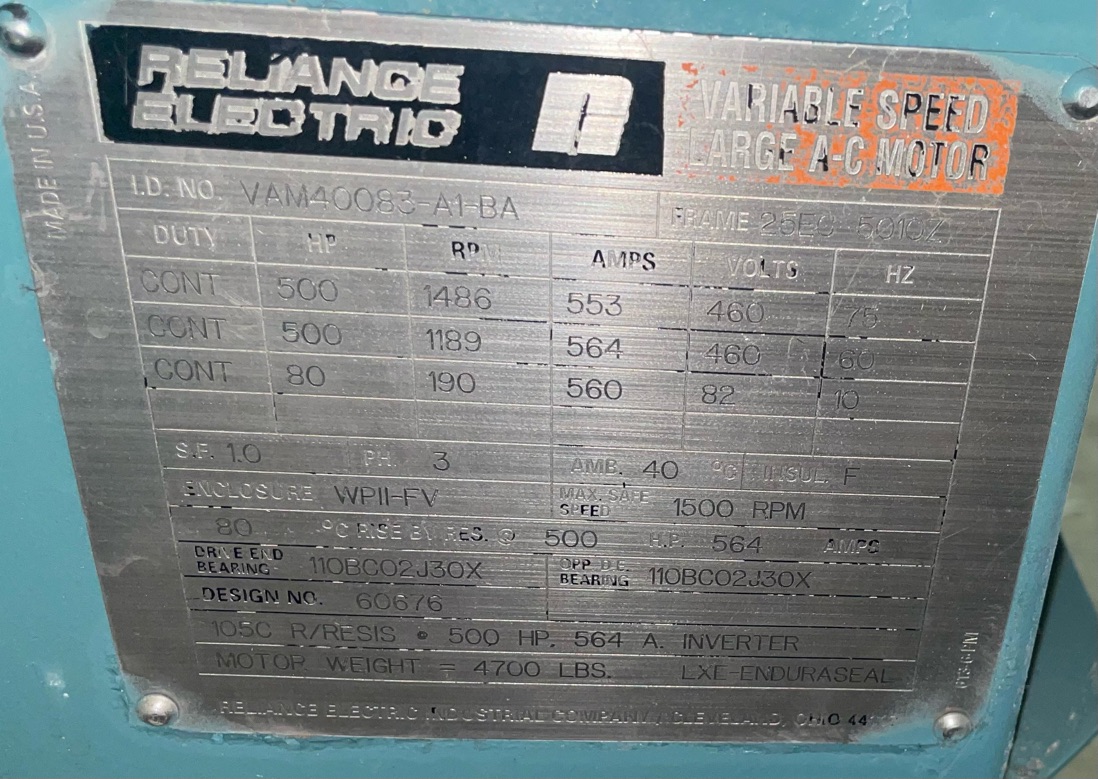 RELIANCE
ELECTRIC
VARIABLE SPEED
LARGE A-C MOTOR
MADE IN U.S.A.
I.D. NO. VAM40083-A1-BA FRAME
DUTY HP RPM AMPS VOLTS HZ
CONT 500 1486 553 460 75
CONT 500 1189 564 460 60
CONT 80 190 560 82 10
S.F. 1.0 PH. 3 AMB. 40 °C INSUL. F
ENCLOSURE WPII-FV MAX. SAFE SPEED 1500 RPM
80 °C RISE BY RES. @ 500 H.P. 564 AMPS
DRIVE END BEARING 110BC02J30X OPP D.E. BEARING 110BC02J30X
DESIGN NO. 60676
105C R/RESIS @ 500 HP, 564 A. INVERTER
MOTOR WEIGHT = 4700 LBS. LXE-ENDURASEAL
RELIANCE ELECTRIC INDUSTRIAL COMPANY / CLEVELAND, OHIO